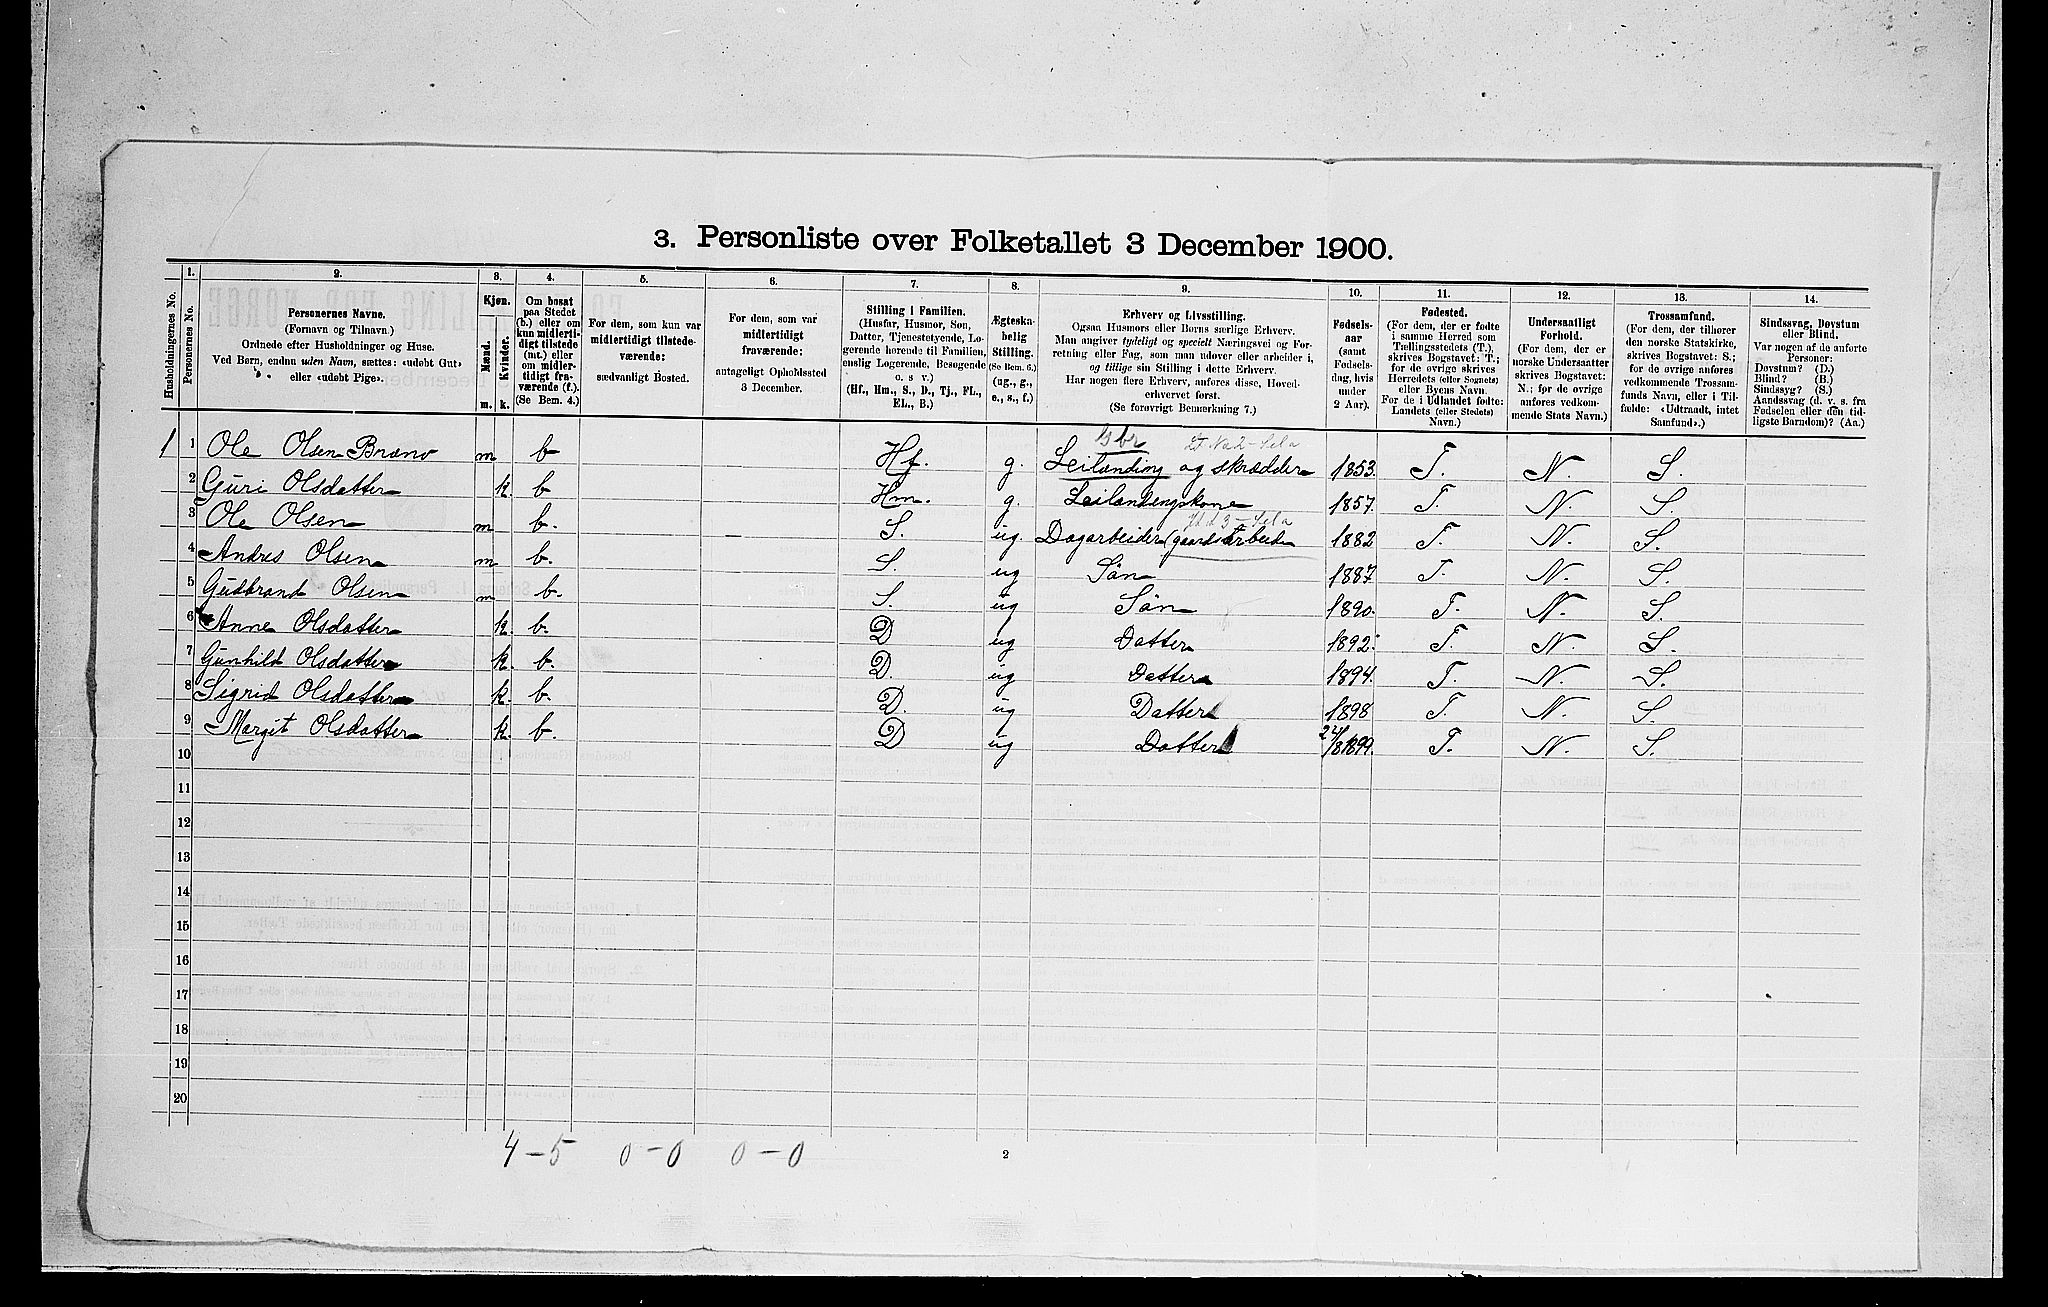 3. Personliste over Folketallet 3 December 1900.
1. 2. 3. 4. 5. 6. 7. 8. 9. 10. 11. 12. 13. 14.
Husholdningernes No.
Personernes No.
Personernes Navne.
(Fornavn og Tilnavn.)
Ordnede efter Husholdninger og Huse.
Ved Børn, endnu uden Navn, sættes: «udøbt Gut»
eller «udøbt Pige».
Kjøn.
Mænd.
Kvinder.
m. k.
Om bosat
paa Stedet
(b.) eller om
kun midlerti-
digt tilstede
(mt.) eller
om midler-
tidigt fra-
værende (f.).
(Se Bem. 4.)
For dem, som kun var
midlertidigt tilstede-
værende:
sædvanligt Bosted.
For dem, som var
midlertidigt
fraværende:
antageligt Opholdssted
3 December.
Stilling i Familien.
(Husfar, Husmor, Søn,
Datter, Tjenestetyende, Lo-
gerende hørende til Familien,
enslig Logerende, Besøgende
o. s v.)
(Hf., Hm., S., D., Tj., FL.,
EL., B.)
Ægteska-
belig
Stilling.
(Se Bem. 6.)
(ug., g.,
e., s., f.)
Erhverv og Livsstilling.
Ogsaa Husmors eller Børns særlige Erhverv.
Man angiver tydeligt og specielt Næringsvei og For-
retning eller Fag, som man udøver eller arbeider i,
og tillige sin Stilling i dette Erhverv.
Har nogen flere Erhverv, anføres disse, Hoved-
erhvervet først.
(Se forøvrigt Bemerkning 7.)
Fødsels-
aar
(samt
Fødsels-
dag, hvis
under
2 Aar).
Fødested.
(For dem, der er fødte
i samme Herred som
Tællingsstedets (T.),
skrives Bogstavet: T.;
for de øvrige skrives
Herredets (eller Sognets)
eller Byens Navn.
For de i Udlandet fødte:
Landets (eller Stedets)
Navn.)
Undersaatligt
Forhold.
(For dem, der er
norske Undersaatter
skrives Bogstavet:
N.; for de øvrige
anføres vedkom-
mende Stats Navn.)
Trossamfund.
(For dem, der tilhører
den norske Statskirke,
skrives Bogstavet: S.;
for de øvrige anføres
vedkommende Trossam-
funds Navn, eller i Til-
fælde: «Udtraadt, intet
Samfund».)
Sindssvag, Døvstum
eller Blind.
Var nogen af de anførte
Personer:
Døvstum? (D.)
Blind? (B.)
Sindssyg? (S.)
Aandssvag (d. v. s. fra
Fødselen eller den tid-
ligste Barndom)? (Aa.)
Gbr
1 1 Ole Olsen Bræno m b Hf. g. Leilænding og skrædder 1853. T. N. S.
2 Guri Olsdatter k. b Hm. g. Leilændingskone 1857. T. N. S.
3 Ole Olsen m b. S. ug. Dagarbeider (gaardsarbeide 1882 T. N. S.
4 Andres Olsen m b. S. ug Søn 1887 T. N. S.
5 Gudbrand Olsen m b. S. ug Søn 1890. T. N. S.
6 Anne Olsdatter k. b. D ug Datter 1892. T. N. S.
7 Gunhild Olsdatter k. b. D. ug Datter 1894. T. N. S.
8 Sigrid Olsdatter k. b. D. ug Datter 1898 T. N. S.
9 Margit Olsdatter k. b. D ug Datter 24/8 1899. T. N. S.
10
11
12
13
14
15
16
17
18
19
20
4 - 5 0 - 0 0 - 0
2